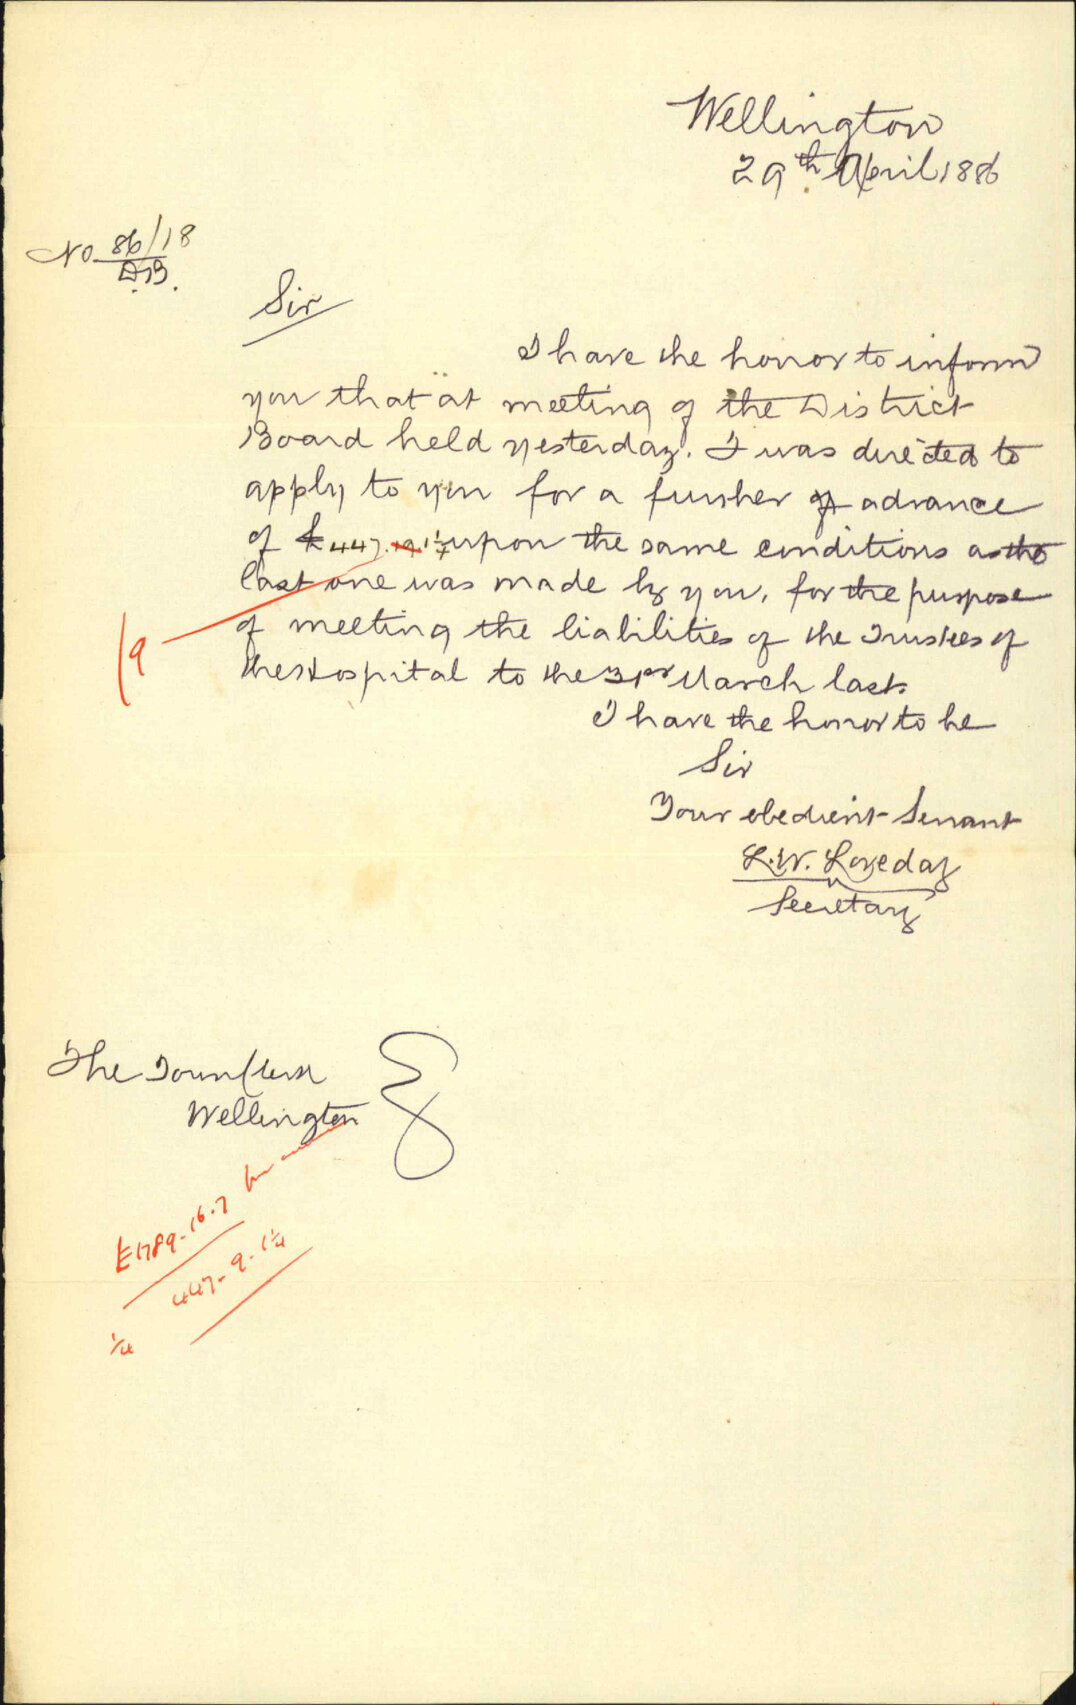 Wellington
29th April 1886
No 86/18
D.B.
Sir
I have the honor to inform
you that at meeting of the District
Board held yesterday. I was directed to
apply to you for a further advance
of £447. 9. 1¼ upon the same conditions as the
last one was made by you, for the purpose
9
of meeting the liabilities of the Trustees of
the Hospital to the 31st March last.
I have the honor to be
Sir
Your obedient Servant
L.W. Loveday
Secretary
The Town Clerk
Wellington
£1789-16.7
447-9-1¼
1/4